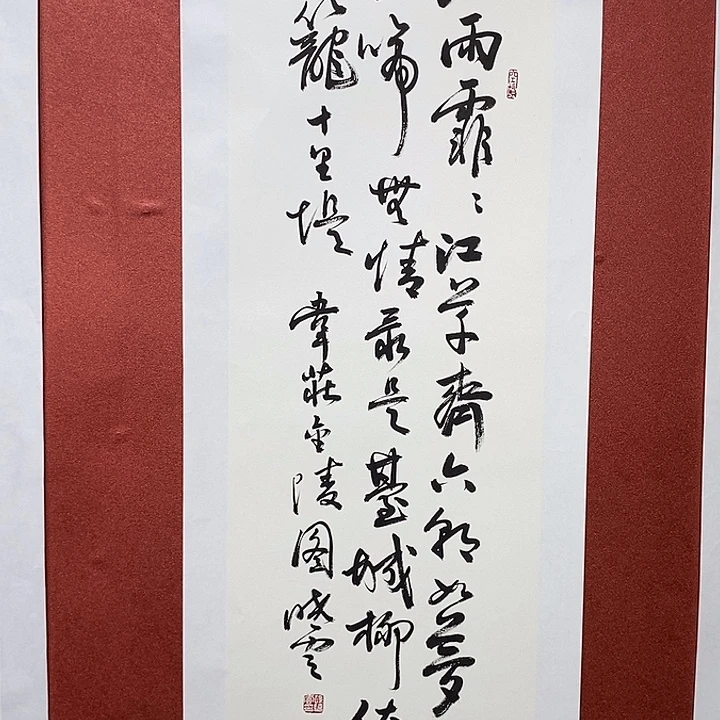 雨霏〻江草齊六朝如夢
啼無情最是臺城柳依
籠十里堤 韋莊金陵图 晓雲